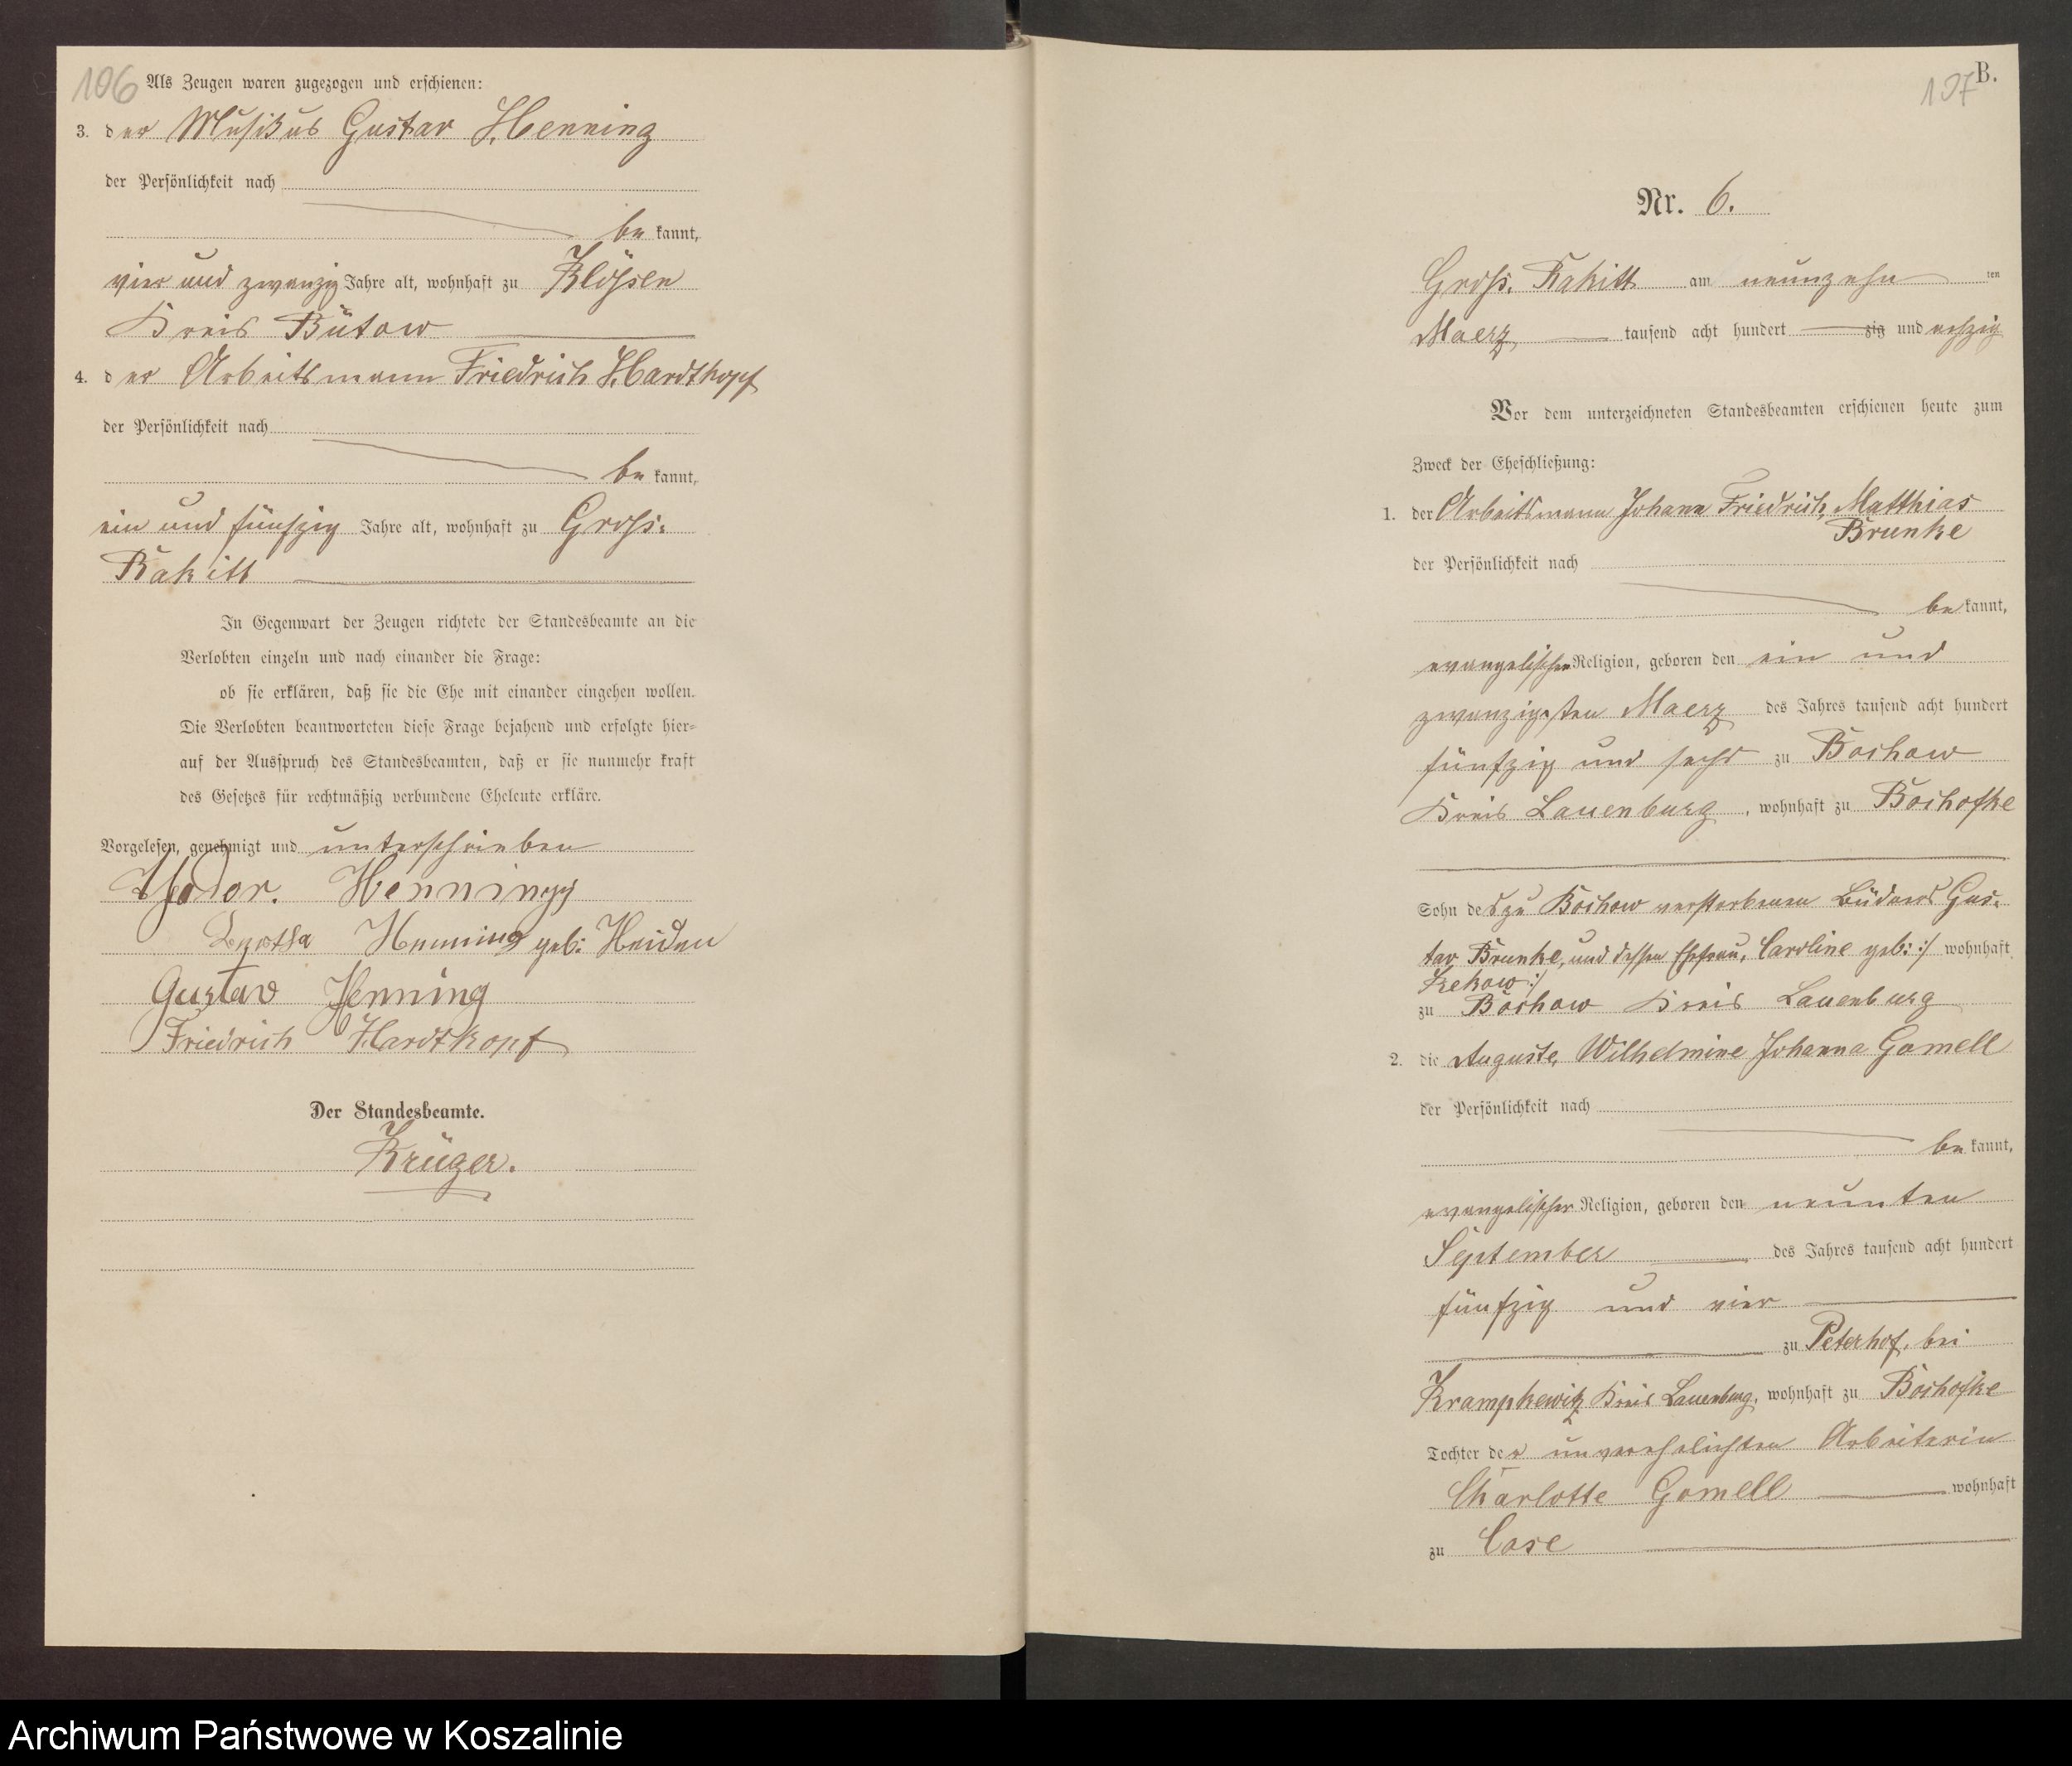 106 Als Zeugen waren zugezogen und erschienen:
3. der Musikus Gustav Henning
der Persönlichkeit nach
bekannt,
vier und zwanzig Jahre alt, wohnhaft zu Klössen
Kreis Bütow
4. der Arbeitsmann Friedrich Hardtkopf
der Persönlichkeit nach
bekannt,
ein und fünfzig Jahre alt, wohnhaft zu Gross-
Rakitt
In Gegenwart der Zeugen richtete der Standesbeamte an die
Verlobten einzeln und nach einander die Frage:
ob sie erklären, daß sie die Ehe mit einander eingehen wollen.
Die Verlobten beantworteten diese Frage bejahend und erfolgte hier-
auf der Ausspruch des Standesbeamten, daß er sie nunmehr kraft
des Gesetzes für rechtmäßig verbundene Eheleute erkläre.
Vorgelesen, genehmigt und unterschrieben
Theodor. Henning
Henning geb: Heiden
Gustav Henning
Friedrich Hardtkopf
Der Standesbeamte.
Krüger.
107 B.
Nr. 6.
Gross. Rakitt am neunzehn ten
Maerz, tausend acht hundert zig und achzig
Vor dem unterzeichneten Standesbeamten erschienen heute zum
Zweck der Eheschließung:
1. der Arbeitsmann Johann Friedrich, Matthias
Brunke
der Persönlichkeit nach
bekannt,
evangelischer Religion, geboren den ein und
zwanzigsten Maerz des Jahres tausend acht hundert
fünfzig und sechs zu Bochow
Kreis Lauenburg, wohnhaft zu Bochofke
Sohn des zu Bochow verstorbenen Büdners Gus-
tav Brunke, und dessen Ehefrau, Caroline geb: :/ wohnhaft
Krekow :/
zu Bochow Kreis Lauenburg
2. die Auguste, Wilhelmine Johanna Gomell
der Persönlichkeit nach
bekannt,
evangelischer Religion, geboren den neunten
September des Jahres tausend acht hundert
fünfzig und vier
zu Peterhof, bei
Krampkewitz Kreis Lauenburg, wohnhaft zu Bochofke
Tochter der unverehelichten Arbeiterin
Charlotte Gomell wohnhaft
zu Cose
Archiwum Państwowe w Koszalinie